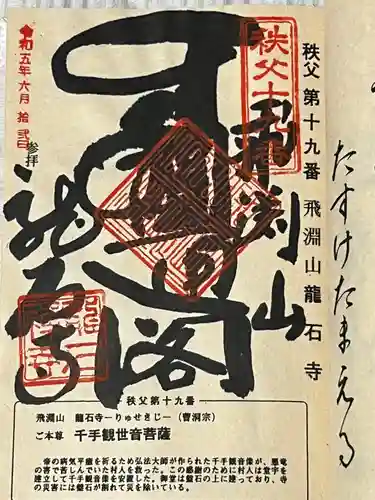 秩父 第十九番 飛淵山 龍石寺
秩父十九番
飛淵山
大悲閣
龍石寺
令和五年六月拾弐日
参拝
たすけたまえる
秩父第十九番
飛淵山 龍石寺―りゅせきじ― (曹洞宗)
ご本尊 千手観世音菩薩
帝の病気平癒を祈るため弘法大師が作られた千手観音像が、悪竜
の害で苦しんでいた村人を救った。この感謝のために村人は堂宇を
建立して千手観音像を安置した。御堂は盤石の上に建っており、帝
の災害には盤石が割れて災を除いている。